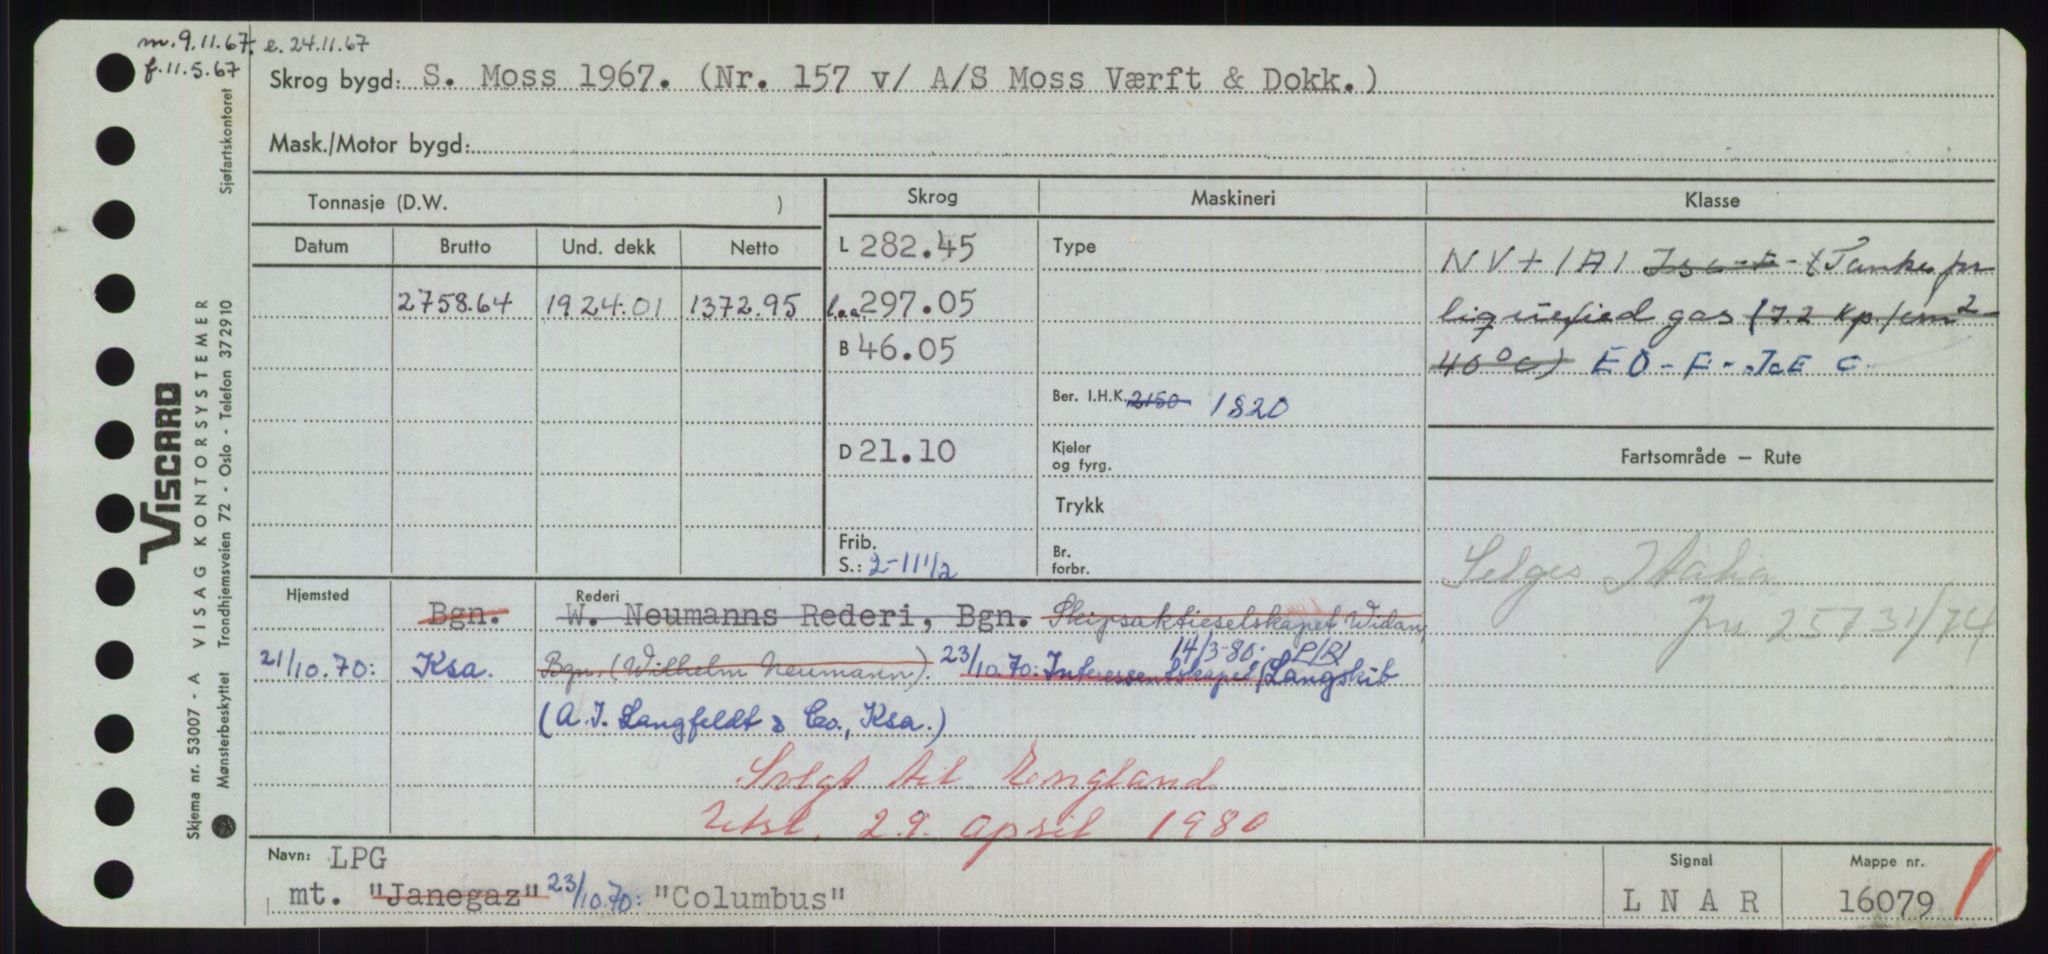 m. 9.11.67. e. 24.11.67
f. 11.5.67
Skrog bygd: S. Moss 1967. (Nr. 157 v/ A/S Moss Værft & Dokk.)
Mask./Motor bygd:
Tonnasje (D.W. )
Skrog
Maskineri
Klasse
Datum Brutto Und. dekk Netto
2758.64 1924.01 1372.95
L 282.45
l.o.a 297.05
B 46.05
D 21.10
Frib. S.: 2-11 1/2
Type
Ber. I.H.K. 2150 1820
Kjeler og fyrg.
Trykk
Br. forbr.
NV+1A1 Ice-F- (Tanks for
liquefied gas (7.2 kp/cm2-
40°C) EO-F-Ice C
Fartsområde – Rute
Selges Italia
Jnr 25731/74
Hjemsted
Rederi
Bgn. W. Neumanns Rederi, Bgn. Skipsaktieselskapet Widan,
14/3-80: P/R
21/10.70: Ksa. Bgn. (Wilhelm Neumann). 23/10.70: Interessentskapet Langskib
(A.I. Langfeldt & Co., Ksa.)
Solgt til England
29. april 1980
Navn: LPG
mt. "Janegaz" 23/10.70: "Columbus"
Signal
L N A R
Mappe nr.
16079
VISCARD
VISAG KONTORSYSTEMER
Skjema nr. 53007 - A
Mønsterbeskyttet
Trondhjemsveien 72 - Oslo - Telefon 372910
Sjøfartskontoret